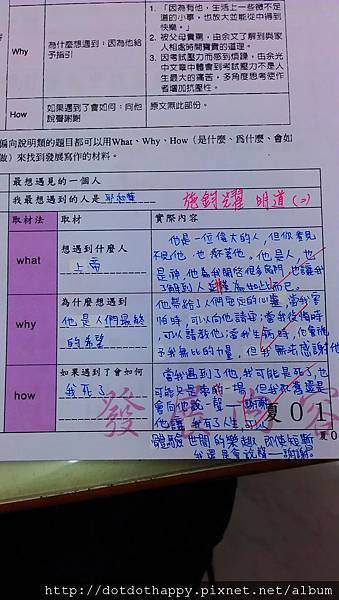 1. 「因為有他，生活上一些微不足
道的小事，也放大並能從中得到
快樂。」
2. 被父母責罵，由余文了解到與家
人相處時間寶貴的道理。
3. 因考試壓力而感到煩躁，由余光
中文章中體會到考試壓力不是人
生最大的痛苦，多角度思考使作
者增加抗壓性。
Why
為什麼想遇到：因為他給
予指引
How
如果遇到了會如何：向他
說聲謝謝
原文無此部份。
偏向說明類的題目都可以用What、Why、How（是什麼、為什麼、會如
做）來找到發展寫作的材料。
最想遇見的一個人
我最想遇到的人是耶和華
施鈞耀 明道(2)
取材法
取材
實際內容
what
想遇到什麼人
上帝
他是一位偉大的人，但你看見
不見他，也
他。他是人，也
是神，他為我開啓
了解到人
why
為什麼想遇到
他是人們最終
的希望
他帶給了人們安定的心靈，當我害
怕時，可以向他請安；當我
時，
可以請教他；當我生病時，他會賜
予我無比的力量，但我無法感謝他
how
如果遇到了會如何
我死了
當我遇到了他，我可能是死了，也
可能只是
的一場，但我
還是
會向他說一聲——謝謝
他讓我有了人生，可以
體驗世間的樂趣，即使短暫
我還是會說聲——謝謝。
發
夏01
夏0
http://dotdothappy.pixnet.net/album